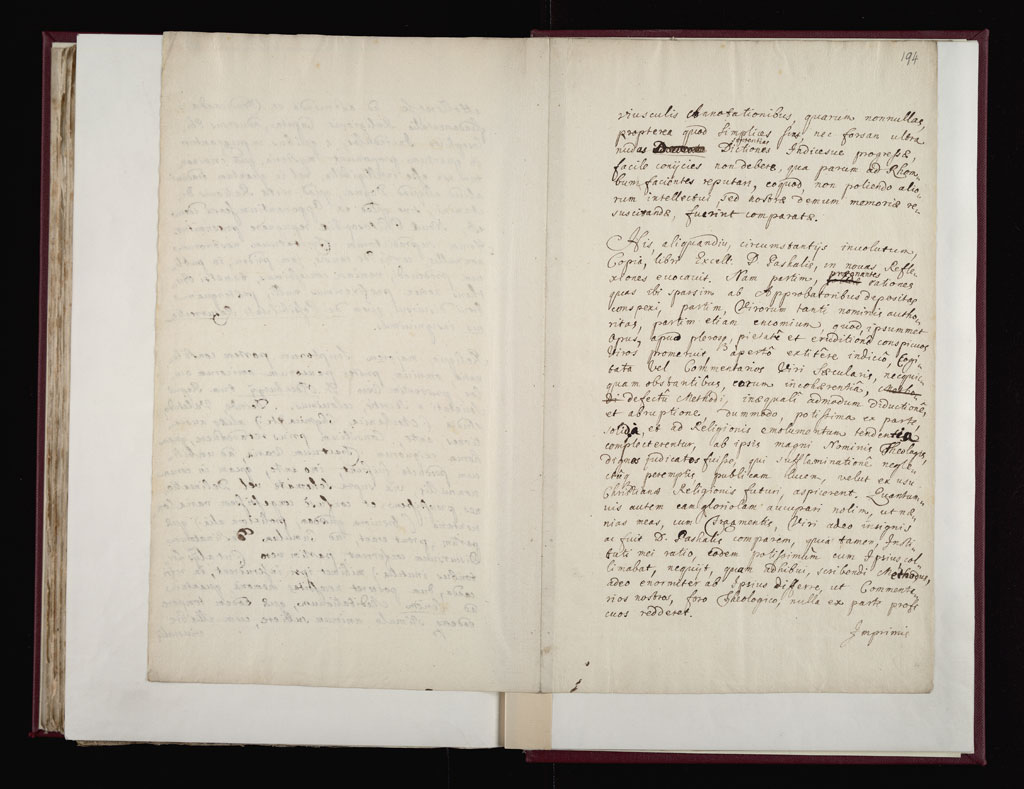 194
viusculis Annotationibus, quarum nonnullas,
propterea quod simplices sint, nec forsan ultra
nudas Dictiones Indicesue progressæ,
facile conijcies non debere, qua parum ad Rhom-
bum facientes reputari, eoquod, non poliendo alio-
rum intellectui, sed nostræ demum memoriæ re-
suscitandæ, fuerint comparatæ.
His, aliquandiu, circumstantijs involutum,
Copia, libri Excell. D. Paskalis, in novas Refle-
xiones evocavit. Nam partim, prægnantes rationes
quas ibi sparsim ab Approbatoribus depositas
conspexi, partim, Virorum tanti nominis autho-
ritas, partim etiam encomium, quod, ipsummet
Opus, apud plerosque, pietate et eruditione conspicuos
Viros promeruit, apertô extitêre indiciô, Cogi-
tata vel Commentarios Viri Sæcularis, nequic-
quam obstantibus, eorum incohærentiâ,
defectu Methodi, inæquali admodum diductione,
et abruptione, dummodo, potissima ex parte,
solida, et ad Religionis emolumentum tendentia
complecterentur, ab ipsis magni Nominis Theologis,
dignos judicatos fuisse, qui sufflaminatione negle-
peremptis, publicam lucem, velut ex usu
Christianæ Religionis futuri, aspicerent. Quantum-
vis autem eam gloriolam aucupari nolim, ut næ-
nias meas, cum Fragmentis, Viri adeo insignis
ac fuit D. Paskalis comparem, quia tamen, Insti-
tuti mei ratio, eodem potissimum cum Ipsius col-
limabat, nequijt, quam adhibui, scribendi Methodus,
adeo enormiter ab Ipsius differre, ut Commenta-
rios nostros, foro Theologico, nulla ex parte profi-
cuos redderet.
Imprimis